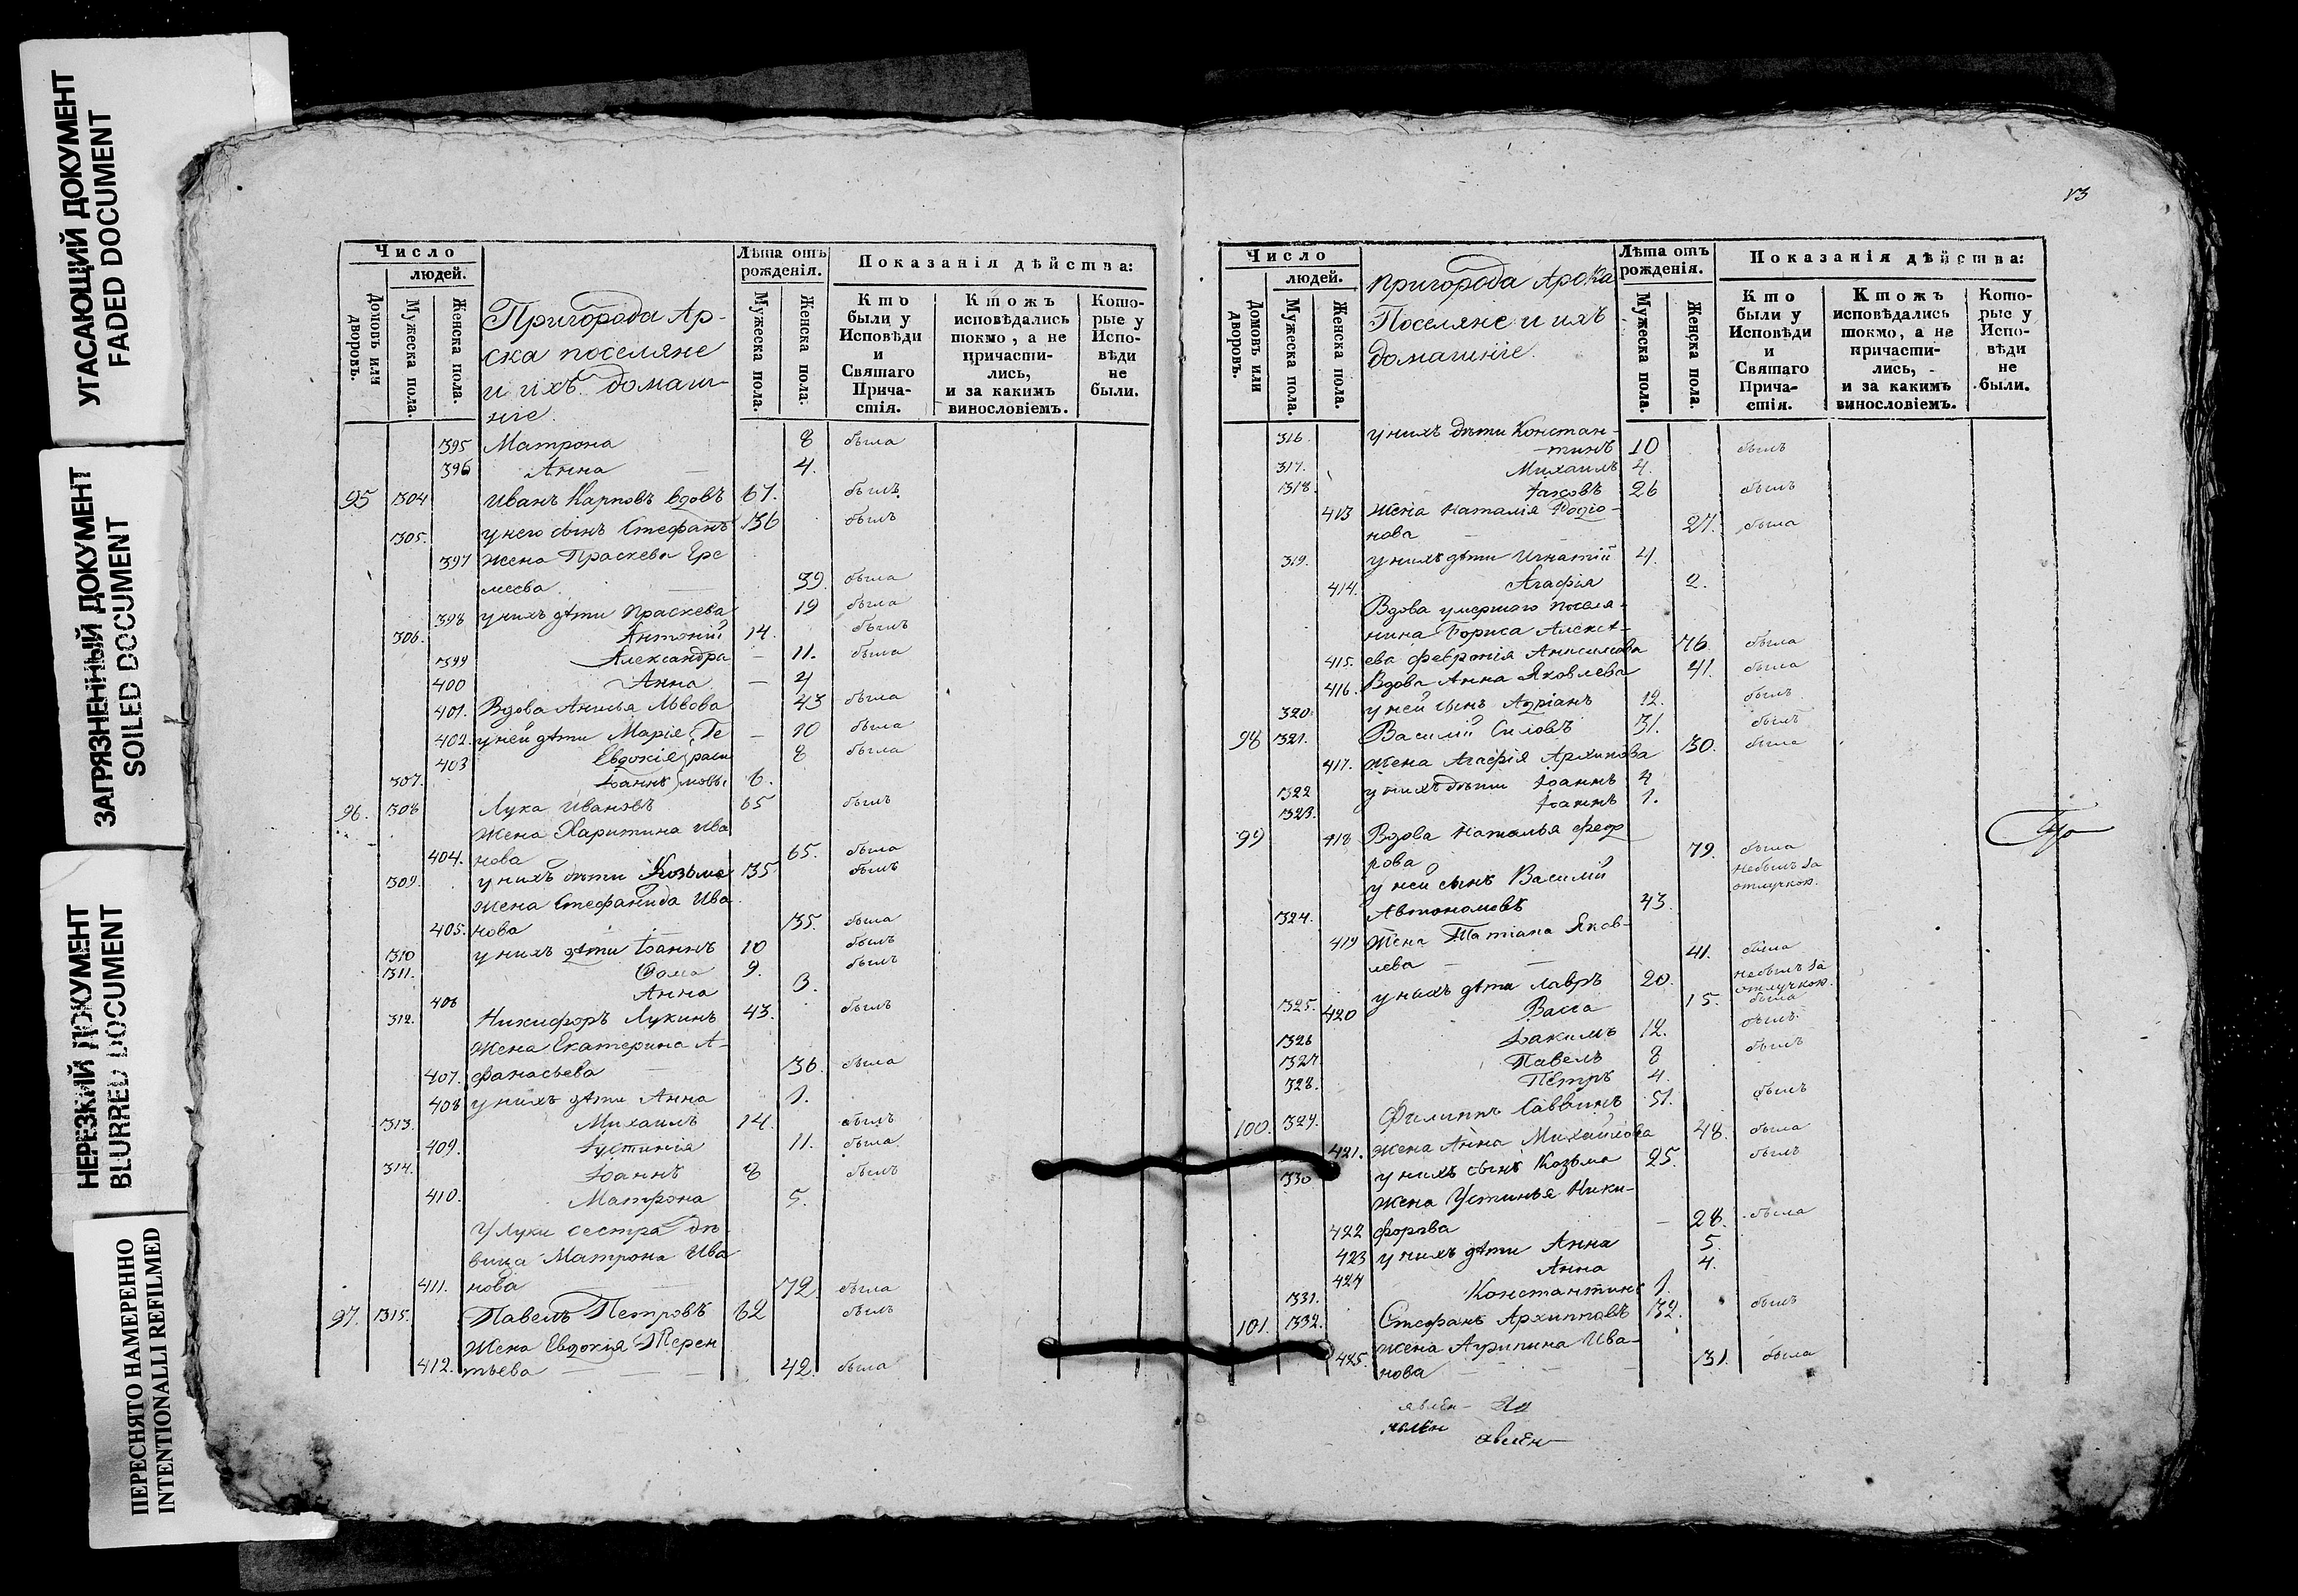 УГАСАЮЩИЙ ДОКУМЕНТ
FADED DOCUMENT
ЗАГРЯЗНЕННЫЙ ДОКУМЕНТ
SOILED DOCUMENT
НЕРЕЗКИЙ ДОКУМЕНТ
BLURRED DOCUMENT
ПЕРЕСНЯТО НАМЕРЕННО
INTENTIONALLI REFILMED
Число
людей.
Домовъ или дворовъ.
Мужеска пола.
Женска пола.
Пригорода Ар-
ска поселяне
и ихъ домаш-
ніе.
Лѣта отъ рожденія.
Мужеска пола.
Женска пола.
Показанія дѣйства:
Кто были у Исповѣди и Святаго Причастія.
Ктожъ исповѣдались токмо, а не причасти-лись, и за какимъ винословіемъ.
Кото-рые у Испо-вѣди не были.
395 Матрона 8 была
396 Анна 4.
95 304 Иванъ Карповъ вдовъ 67. былъ
305. у него сынъ Стефанъ 36 былъ
397 жена Праскева Ере
меева 39. была
398 у нихъ дѣти Праскева 19 была
306. Антоній 14. былъ
399 Александра 11. была
400 Анна 4
401. Вдова Анисья Львова 43 была
402. у ней дѣти Марія Ге 10 была
403 Евдокія раси 8 была
307. Іоаннъ мовы 6.
96. 308 Лука Ивановъ 65 былъ
Жена Харитина Ива
404. нова 65. была
309. у нихъ дѣти Козьма 35 былъ
жена Стефанида Ива
405. нова 35. была
310 у нихъ дѣти Іоаннъ 10 былъ
311. Ѳома 9. былъ
406 Анна 3.
312. Никифоръ Лукинъ 43. былъ
Жена Екатерина А-
407. фанасьева 36. была
408 у нихъ дѣти Анна 1.
313. Михаилъ 14. былъ
409. Іустинія 11. была
314. Іоаннъ 8 былъ
410. Матрона 5.
У Луки сестра дѣ-
вица Матрона Ива
411. нова 72. была
97. 315. Павелъ Петровъ 62 былъ
Жена Евдокія Терен
412. тьева 42. была
Число
людей.
Домовъ или дворовъ.
Мужеска пола.
Женска пола.
Пригорода Арска
Поселяне и ихъ
домашніе.
Лѣта отъ рожденія.
Мужеска пола.
Женска пола.
Показанія дѣйства:
Кто были у Исповѣди и Святаго Прича-стія.
Ктожъ исповѣдались токмо, а не причасти-лись, и за какимъ винословіемъ.
Кото-рые у Испо-вѣди не были.
316. у нихъ дѣти Констан-
тинъ 10 былъ
317. Михаилъ 4.
318. Іаковъ 26 былъ
413 жена Наталія Родіо-
нова 27. была
319. у нихъ дѣти Игнатій 4.
414. Агафія 2.
Вдова умершаго поселя-
нина Бориса Алексѣ-
415. ева Февронія Анисимова 76. была
416. Вдова Анна Яковлева 41. была
320. у ней сынъ Адріанъ 12. былъ
98 321. Василій Силовъ 31. былъ
417. жена Агафія Архипова 30. была
322 у нихъ дѣти Іоаннъ 4
323. Іоаннъ 1.
99 418 Вдова Наталья Фео
рова 79. была
у ней сынъ Василій
324. Автономовъ 43. небылъ за отлучкою.
419 Жена Татіана Яков-
лева 41. была
325. у нихъ дѣти Лавръ 20. небылъ за отлучкою.
420 Васса 15. была
326 Іакимъ 12. былъ
327 Павелъ 8 былъ
328. Петръ 4.
100. 329. Филиппъ Саввинъ 51. былъ
421. жена Анна Михайлова 48. была
330 у нихъ сынъ Козьма 25. былъ
жена Устинья Ники-
422 форова 28. была
423 у нихъ дѣти Анна 5.
424 Анна 4.
331. Константинъ 1.
101. 332. Стефанъ Архиповъ 32. былъ
жена Агрипина Ива-
425. нова 31. была